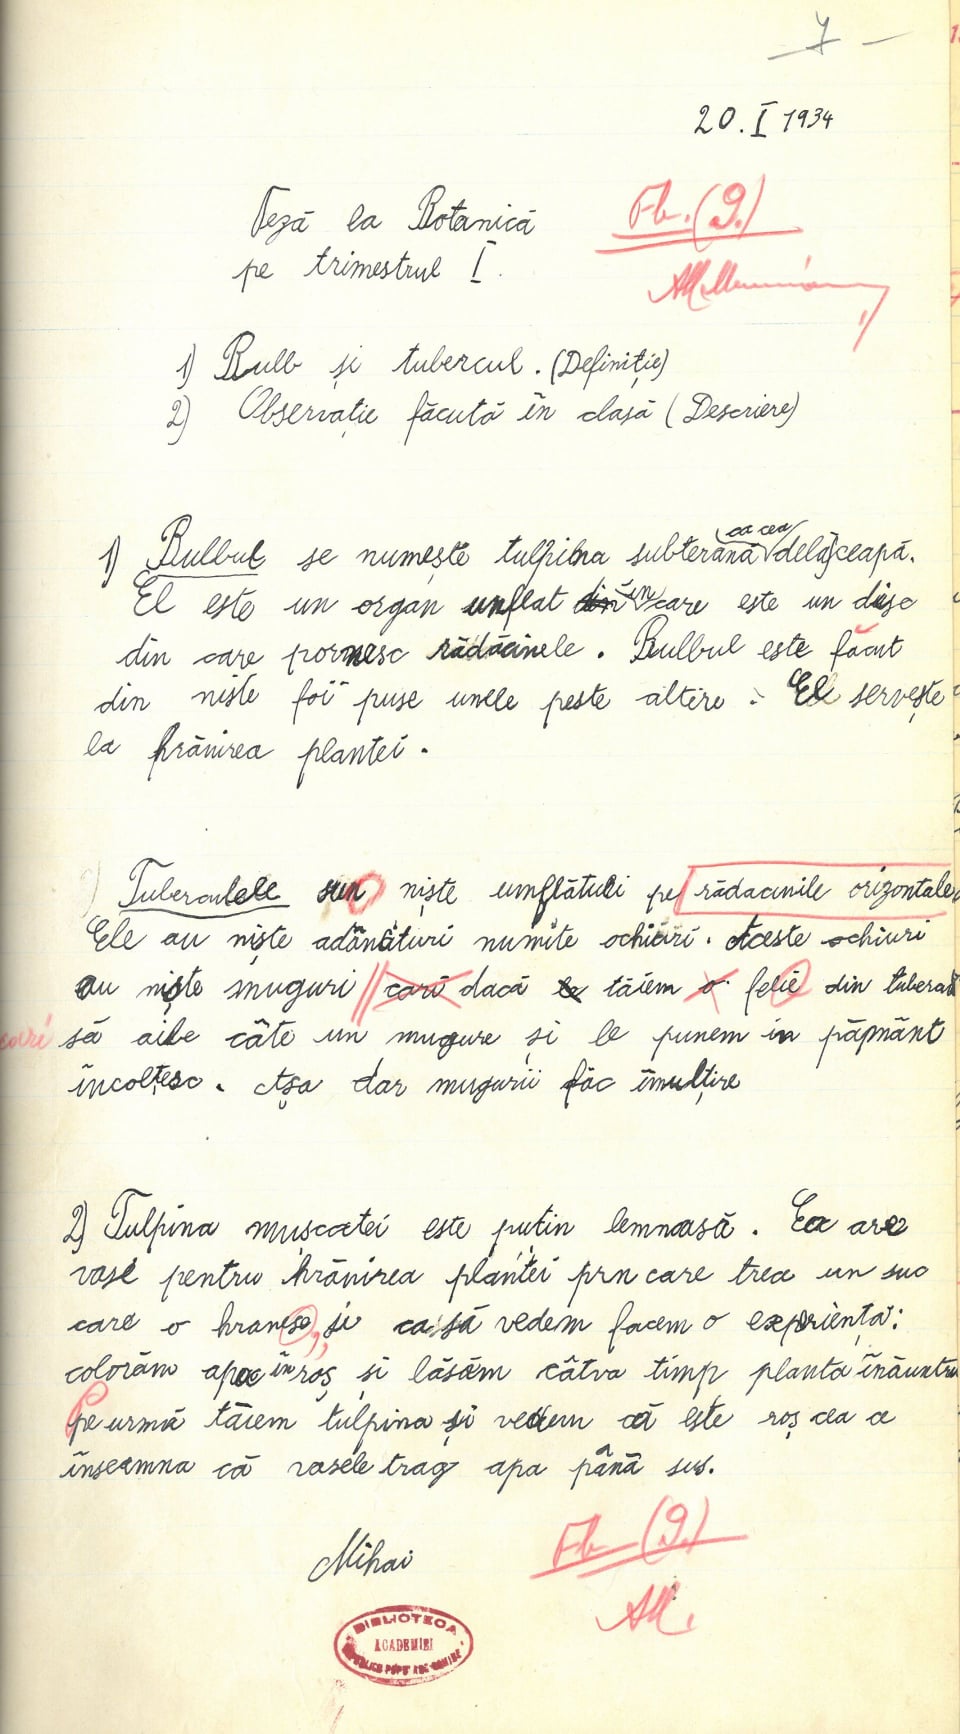 7
20.I 1934
Teză la Botanică
Fb. (9.)
pe trimestrul I.
1) Bulb și tubercul. (Definiție)
2) Observație făcută în clasă (Descriere)
1) Bulbul se numește tulpina subterană ca cea dela ceapă.
El este un organ umflat în care este un disc
din care pornesc rădăcinele. Bulbul este făcut
din niște foi puse unele peste altele. El servește
la hrănirea plantei.
Tuberculele sun niște umflături pe rădacinile orizontale
Ele au niște adâncituri numite ochiuri. Aceste ochiuri
au niște muguri cari dacă tăiem o felie din
cari să aibe câte un mugure și le punem in pãpmânt
încolțesc. Așa dar mugurii fac îmulțire
2) Tulpina mușcatei este puțin lemnoasă. Ea are
vase pentru hrănirea plantei prn care trec un suc
care o hranesc, și ca să vedem facem o experiența:
colorăm apa în roș și lăsăm câtva timp planta înăuntru
Pe urmă tăiem tulpina și vedem că este roș cea ce
înseamna că vasele trag apa până sus.
Mihai
Fb (9.)
BIBLIOTECA
ACADEMIEI